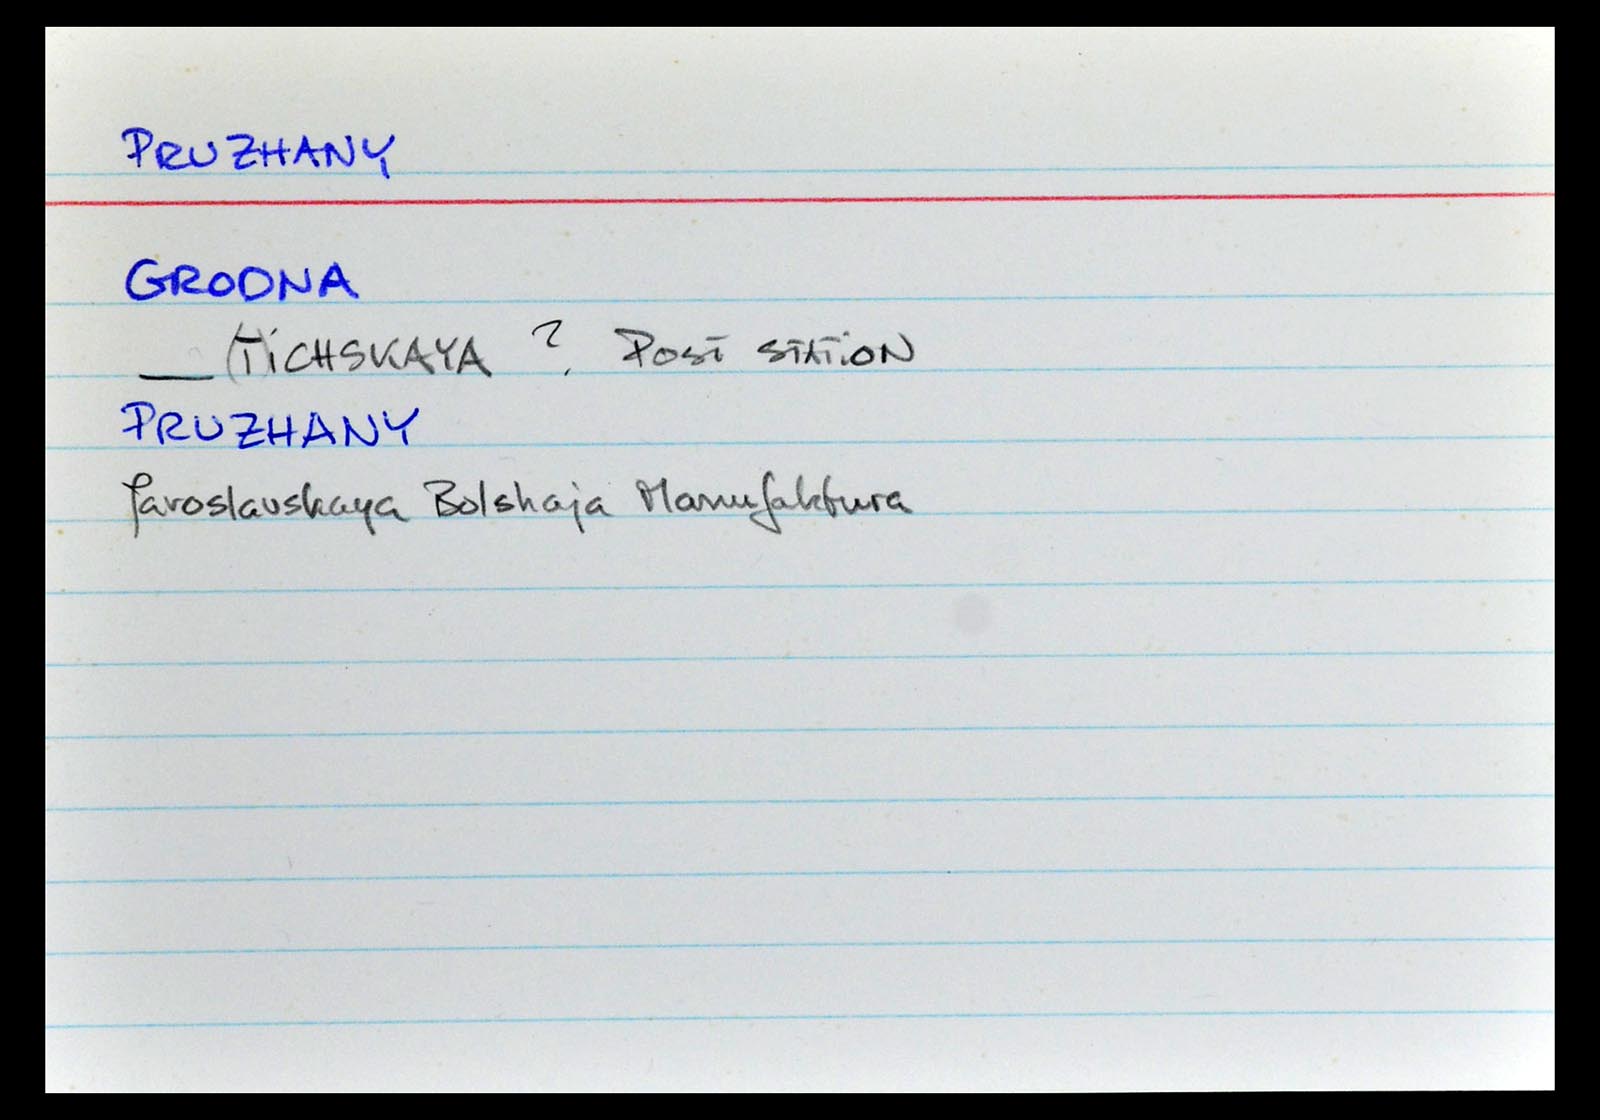 PRUZHANY
GRODNA
__(T)ICHSKAYA ?. POST STATION
PRUZHANY
Jaroslavskaya Bolshaja Manufaktura